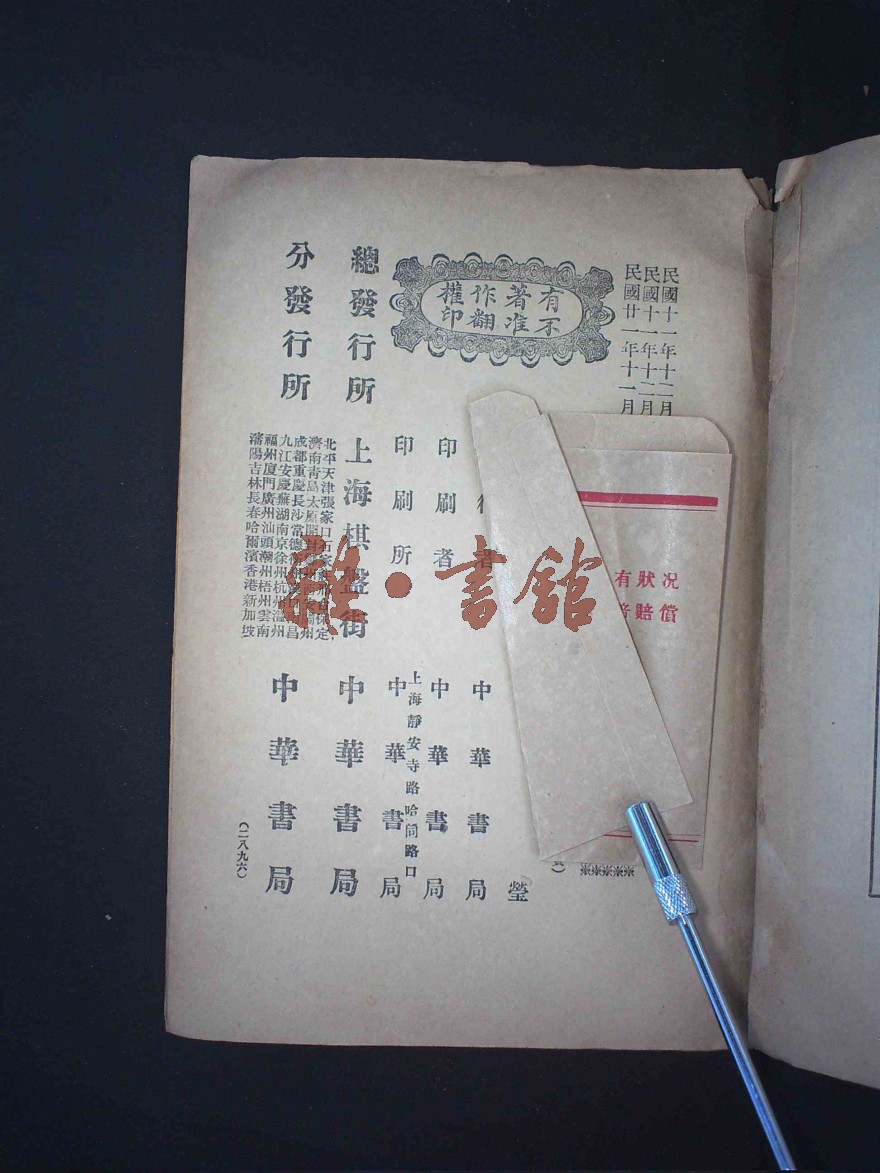 民國十一年十二月
民國十一年十二月
民國廿一年十一月
有不
著准
作翻
權印
※※※※※
瑩
中華書局
印刷者
中華書局
上海靜安寺路哈同路口
印刷所
中華書局
總發行所
上海棋盤街
中華書局
分發行所
北平天津張家口石家
濟南青島太原開封
成都重慶長沙常德
九江安慶蕪湖南京徐州杭州溫州
福州廈門廣州汕頭潮州梧州雲南
瀋陽吉林長春哈爾濱香港新加坡
中華書局
(二八九六)
有狀况
賠償
雜·書館